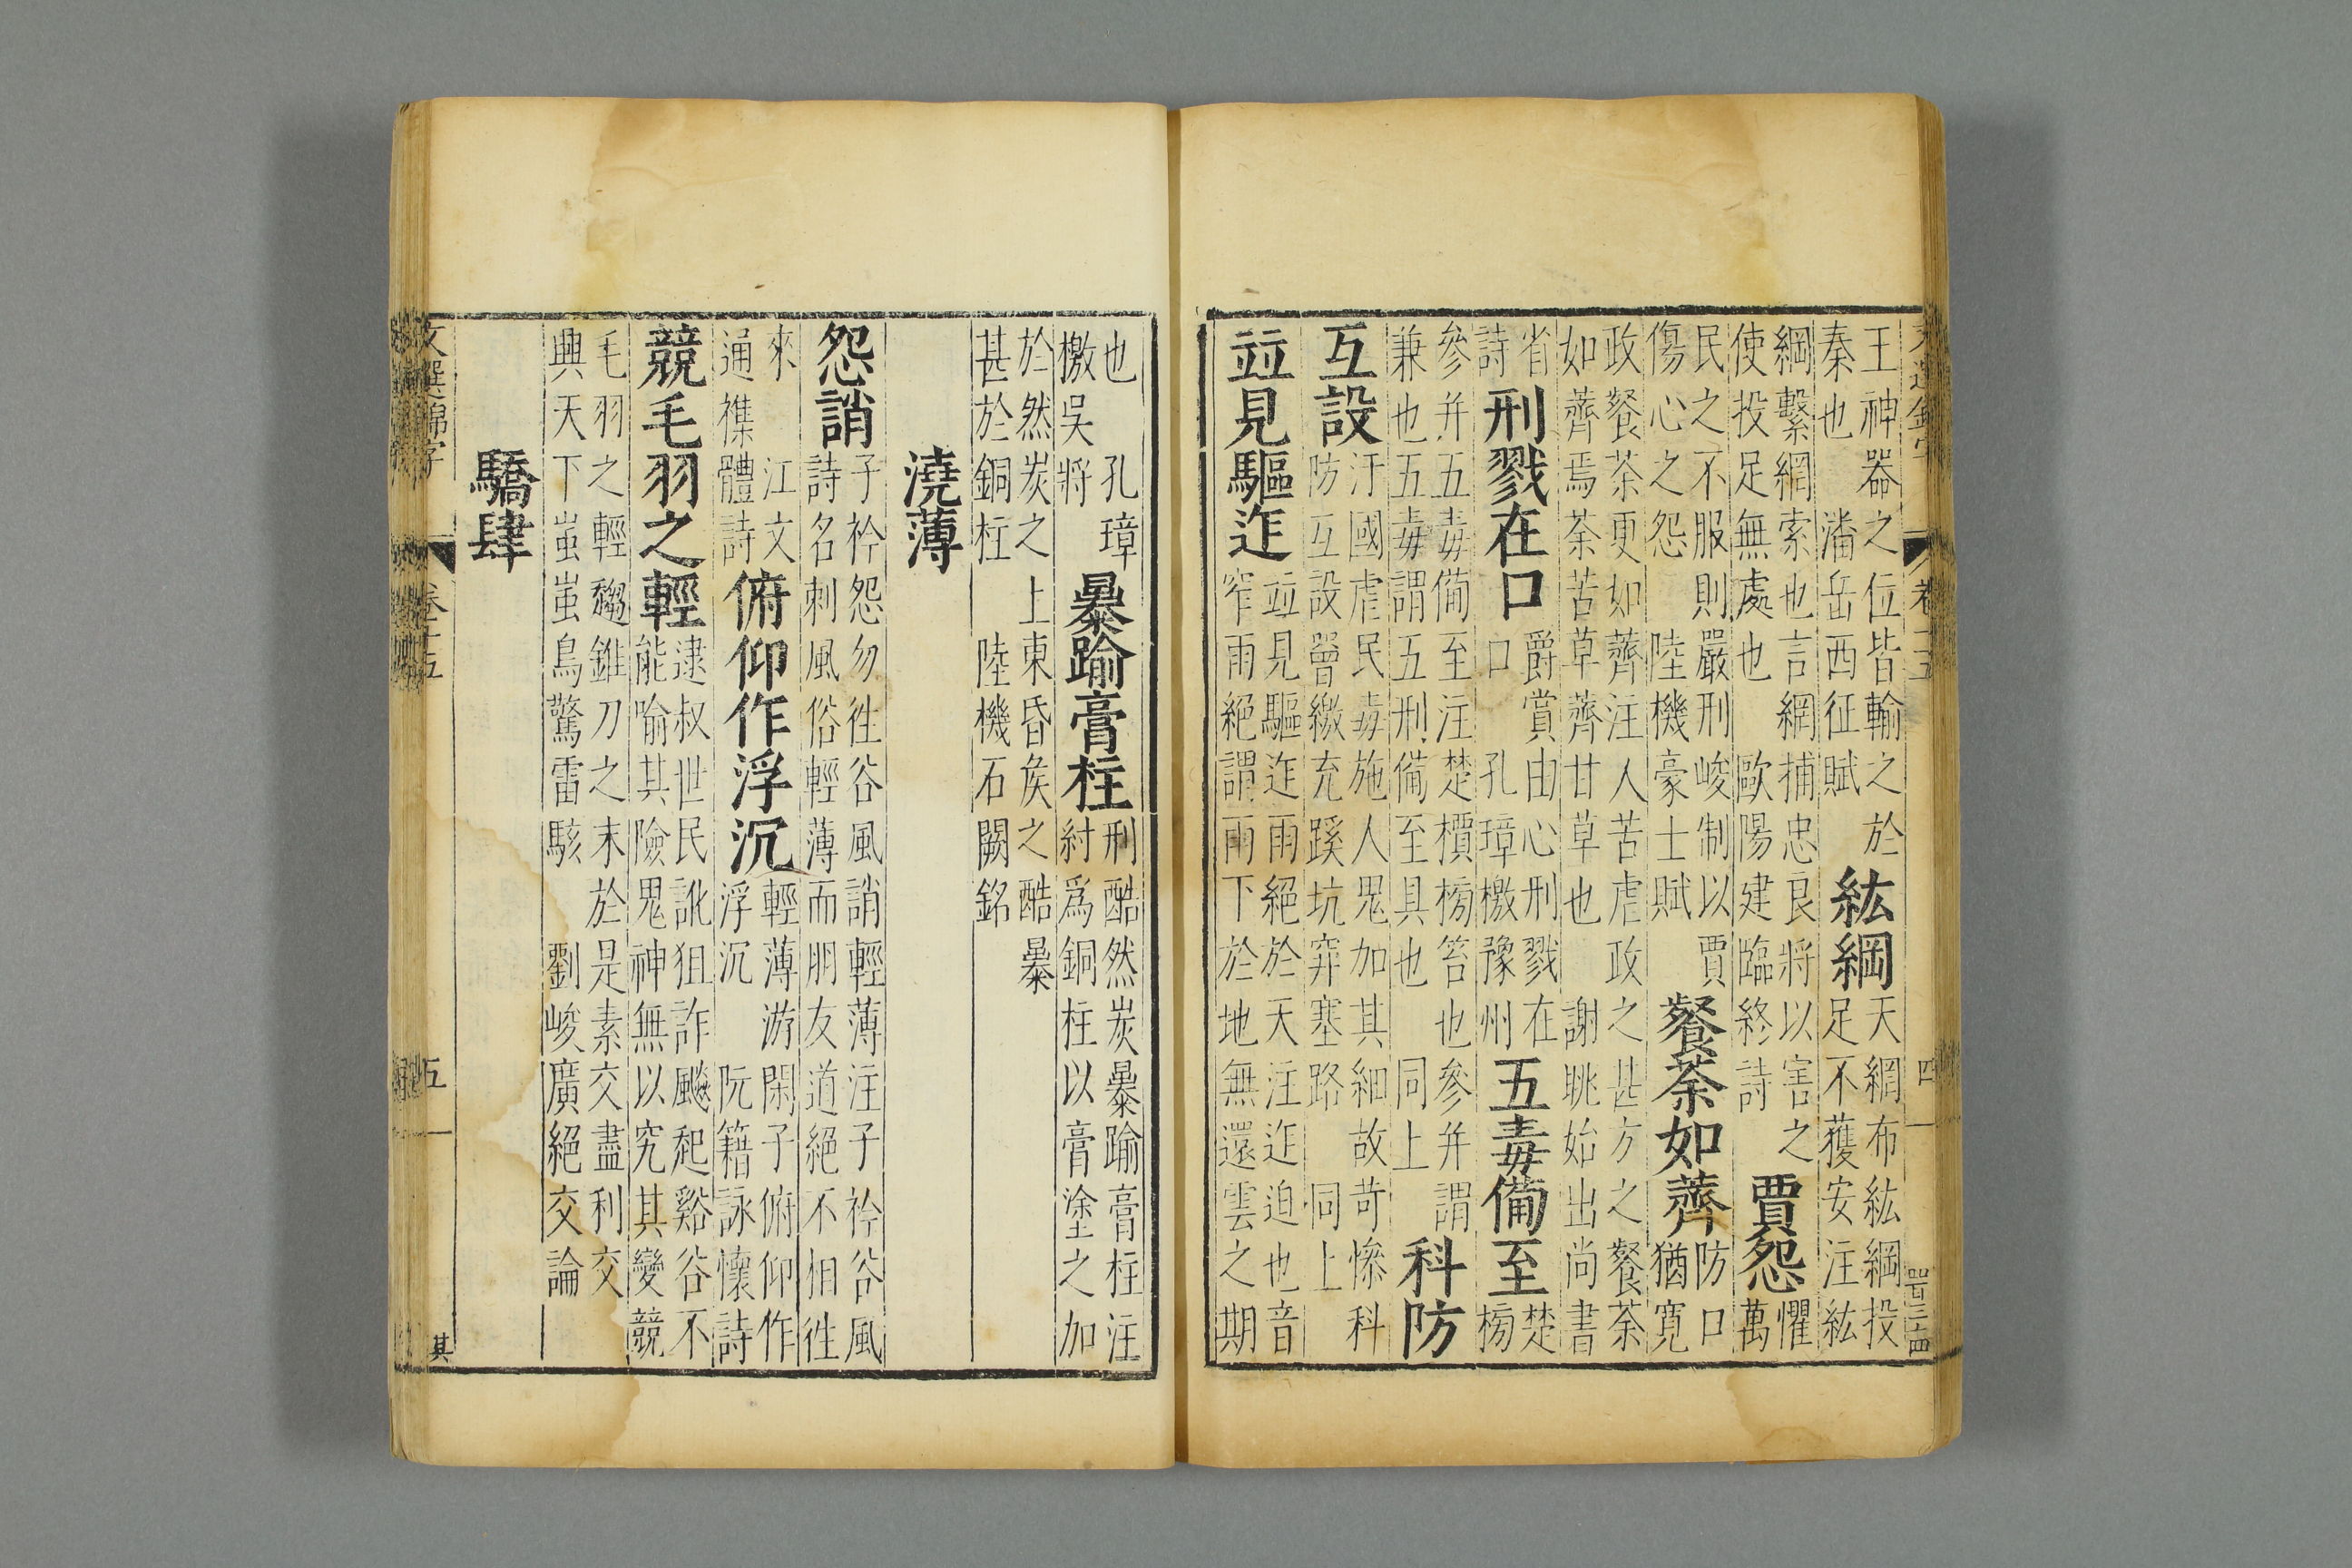 文選錦字　卷十五　四
王神器之位皆輸之於
秦也　潘岳西征賦
紘綱
天網布紘綱投
足不獲安注紘
綱繫網索也言網捕忠良將以害之
使投足無處也　歐陽建臨終詩
賈怨
懼
萬
民之不服則嚴刑峻制以賈
傷心之怨　陸機豪士賦
餐荼如薺
防口
猶寛
政餐荼更如薺注人苦虐政之甚方之餐荼
如薺焉荼苦草薺甘草也　謝眺始出尚書
省
詩
刑戮在口
爵賞由心刑戮在
口　孔璋檄豫州
五毒備至
楚
榜
參并五毒備至注楚檟榜笞也參并謂
兼也五毒謂五刑備至具也　同上
科防
互設
汙國虐民毒施人鬼加其細故苛慘科
防互設罾繳充蹊坑穽塞路　同上
竝見驅迮
竝見驅迮雨絕於天注迮迫也音
窄雨絕謂雨下於地無還雲之期
也　孔璋
檄吳將
暴踰膏柱
刑酷然炭暴踰膏柱注
紂爲銅柱以膏塗之加
於然炭之上東昏侯之酷暴
甚於銅柱　陸機石闕銘
澆薄
怨誚
子衿怨勿徃谷風誚輕薄注子衿谷風
詩名刺風俗輕薄而朋友道絕不相徃
來　江文
通襍體詩
俯仰作浮沉
輕薄游閑子俯仰作
浮沉　阮籍詠懷詩
競毛羽之輕
逮叔世民訛狙詐飈起谿谷不
能喻其險鬼神無以究其變競
毛羽之輕趨錐刀之末於是素交盡利交
興天下蚩蚩鳥驚雷駭　劉峻廣絕交論
驕肆
文選錦字　卷十五　五　其